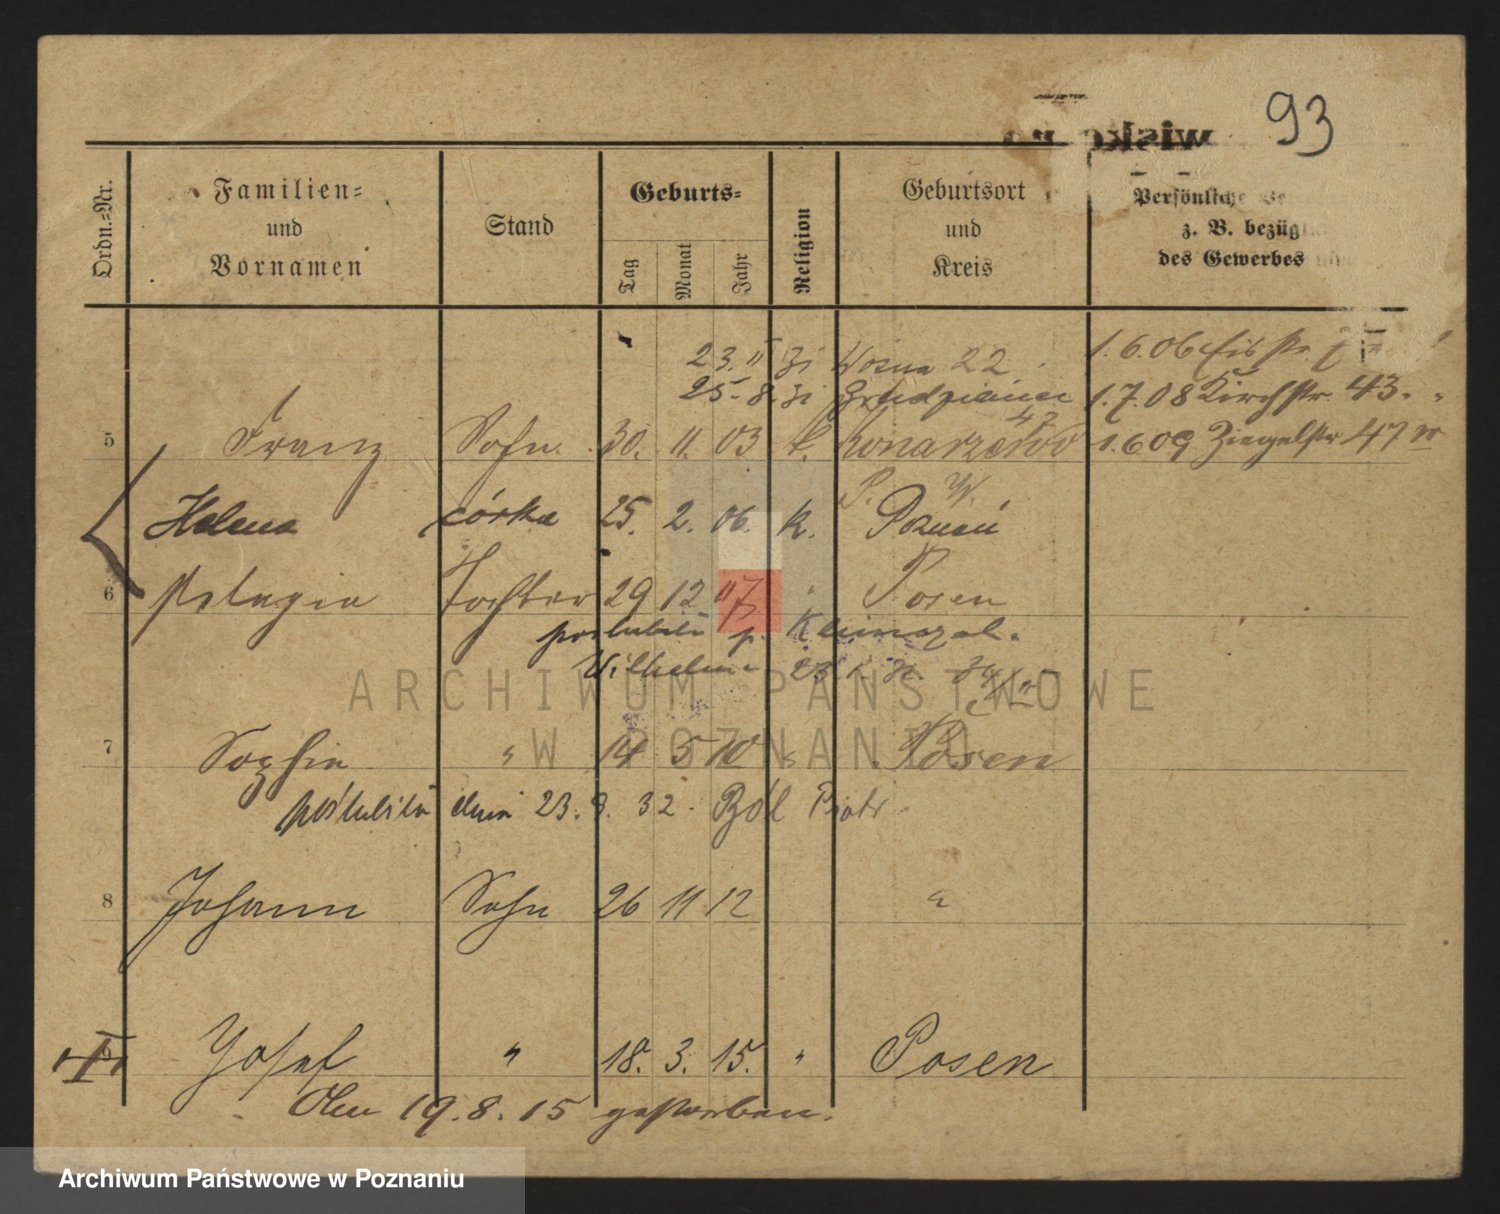 93
Ordn.=Nr.
Familien=
und
Vornamen
Stand
Geburts=
Tag
Monat
Jahr
Religion
Geburtsort
und
Kreis
Persönliche
z. B. bezüg
des Gewerbes
23. 11 31 Wozna 22
1.6.06
25. 8. 31 Grudzieniec 47
1.7.08 Kirchstr. 43.
5 Franz Sohn 30. 11. 03 k. Konarzewo
1.6.09 Ziegelstr 47
P. W.
Helena córka 25. 2. 06. k. Poznań
6 Pelagia Tochter 29 12 07 " Posen
poślubiła p.
Wilhelma
7 Sophia " 14 5 10 " Posen
poślubiła dnia 23. 8. 32. Piotr
8 Johann Sohn 26 11 12 "
9 Josef " 18. 3. 15. " Posen
Am 19.8.15 gestorben.
ARCHIWUM PAŃSTWOWE
W POZNANIU
Archiwum Państwowe w Poznaniu